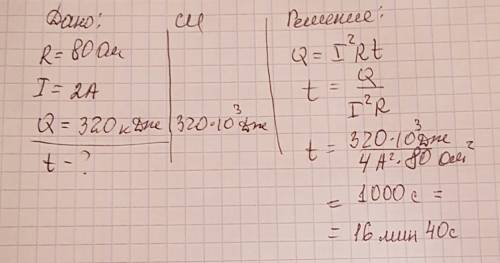 Дано:
R = 80 Ом
I = 2А
Q = 320 кДж
t - ?
СИ
320·10³ Дж
Решение:
Q = I²Rt
t = Q / I²R
t = 320·10³ Дж / 4А²·80 Ом²
= 1000 с =
= 16 мин 40с